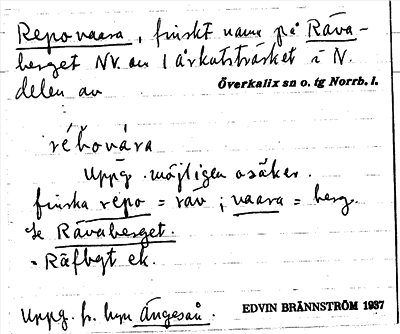 Repovaara, finskt namn på Räva-
berget NV. om Lårkutsträsket i N.
delen av
Överkalix sn o. tg Norrb. l.
réhovára
Uppg. möjligen osäker.
finska repo = räv; vaara = berg.
Se Rävaberget.
= Räfbgt ek.
Uppg. fr. byn Ängesån.
EDVIN BRÄNNSTRÖM 1937